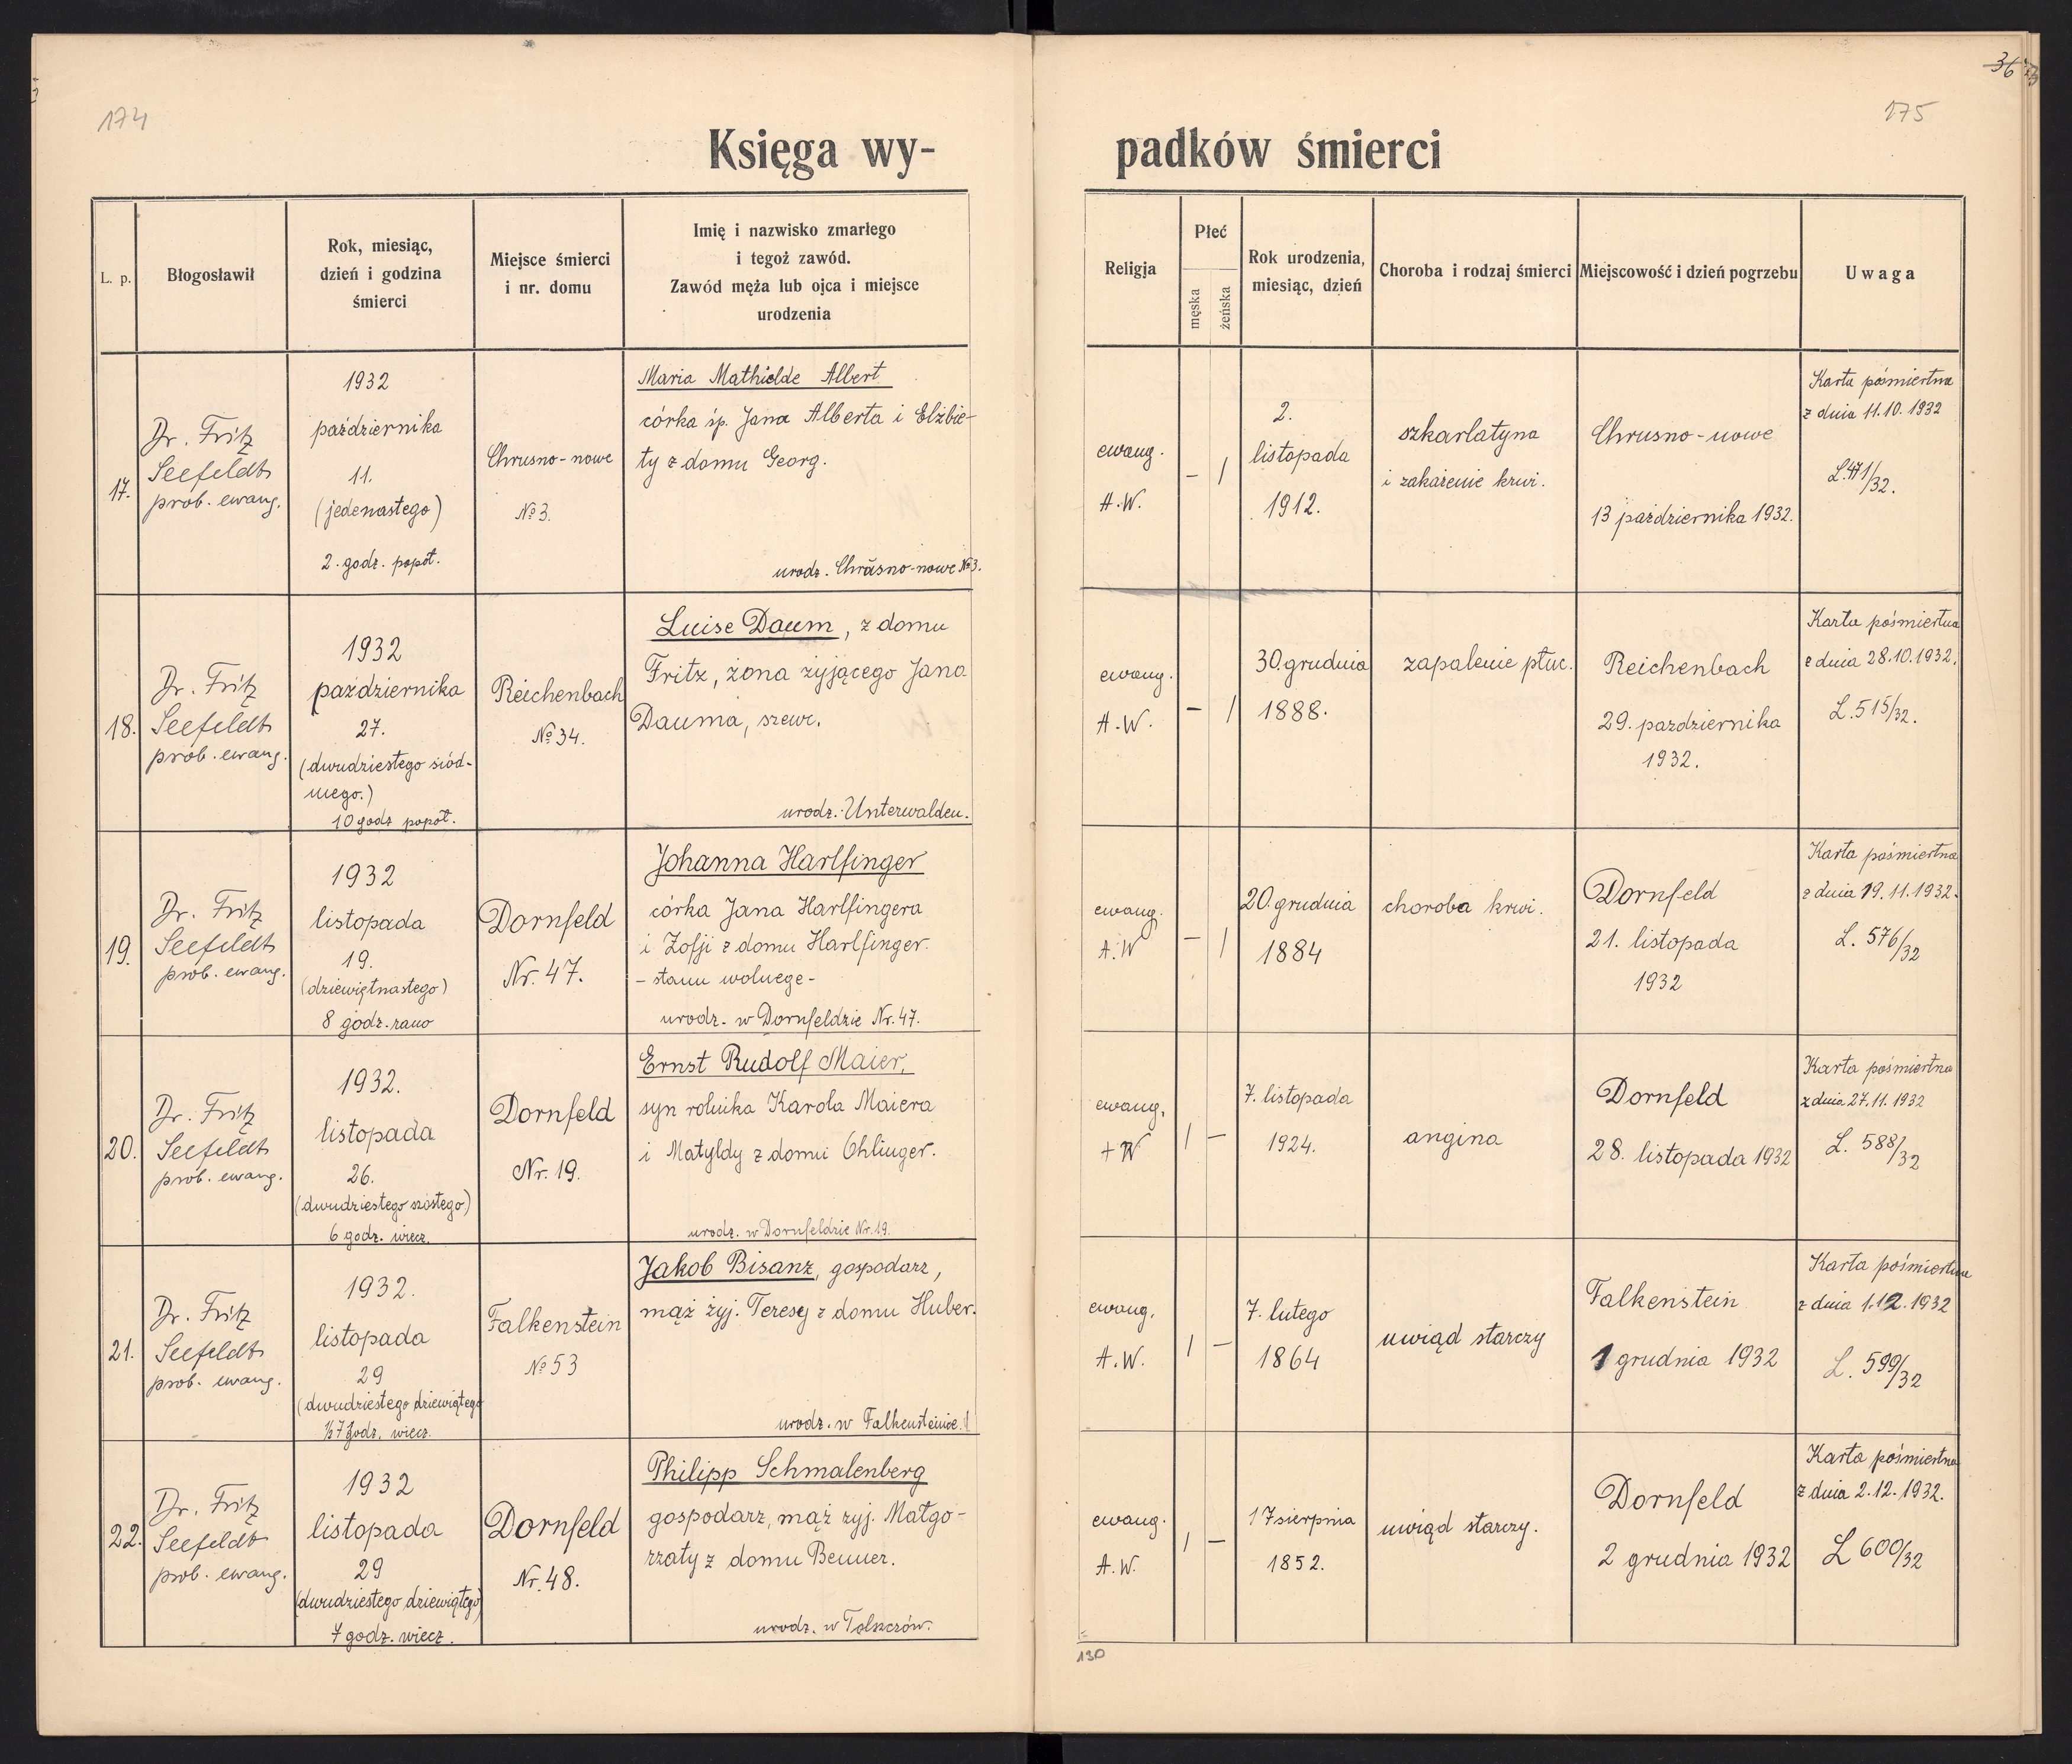 174
Księga wy-
L. p.
Błogosławił
Rok, miesiąc,
dzień i godzina
śmierci
Miejsce śmierci
i nr. domu
Imię i nazwisko zmarłego
i tegoż zawód.
Zawód męża lub ojca i miejsce
urodzenia
17.
Dr. Fritz
Seefeldt
prob. ewang.
1932
października
11.
(jedenastego)
2. godz. popoł.
Chrusno-nowe
No 3.
Maria Mathielde Albert
córka śp. Jana Alberta i Elżbie-
ty z domu Georg.
urodz. Chrusno-nowe No 3.
18.
Dr. Fritz
Seefeldt
prob. ewang.
1932
października
27.
(dwudziestego siód-
mego.)
10 godz popoł.
Reichenbach
No 34.
Luise Daum, z domu
Fritz, żona żyjącego Jana
Dauma, szewc.
urodz. Unterwalden.
19.
Dr. Fritz
Seefeldt
prob. ewang.
1932
listopada
19.
(dziewiętnastego)
8 godz. rano
Dornfeld
Nr. 47.
Johanna Harlfinger
córka Jana Harlfingera
i Zofji z domu Harlfinger.
- stanu wolnego -
urodz. w Dornfeldzie Nr. 47.
20.
Dr. Fritz
Seefeldt
prob. ewang.
1932.
listopada
26.
(dwudziestego szóstego)
6 godz. wiecz.
Dornfeld
Nr. 19.
Ernst Rudolf Maier,
syn rolnika Karola Maiera
i Matyldy z domu Ohlinger.
urodz. w Dornfeldzie Nr. 19.
21.
Dr. Fritz
Seefeldt
prob. ewang.
1932.
listopada
29
(dwudziestego dziewiątego
½7 godz. wiecz.
Falkenstein
No 53
Jakob Bisanz, gospodarz,
mąż żyj. Teresy z domu Huber.
urodz. w Falkensteinie.
22.
Dr. Fritz
Seefeldt
prob. ewang.
1932
listopada
29
(dwudziestego dziewiątego)
7 godz. wiecz.
Dornfeld
Nr. 48.
Philipp Schmalenberg
gospodarz, mąż żyj. Małgo-
rzaty z domu Benner.
urodz. w Tolszczów.
36
175
padków śmierci
Religja
Płeć
męska
żeńska
Rok urodzenia,
miesiąc, dzień
Choroba i rodzaj śmierci
Miejscowość i dzień pogrzebu
Uwaga
ewang.
A.W.
- /
2.
listopada
1912.
szkarlatyna
i zakażenie krwi.
Chrusno-nowe
13 października 1932.
Karta pośmiertna
z dnia 11.10.1932
L.471/32.
ewang.
A.W.
- /
30 grudnia
1888.
zapalenie płuc.
Reichenbach
29. października
1932.
Karta pośmiertna
z dnia 28.10.1932.
L.515/32.
ewang.
A.W
- /
20. grudnia
1884
choroba krwi.
Dornfeld
21. listopada
1932
Karta pośmiertna
z dnia 19.11.1932.
L. 576/32
ewang.
A W
/ -
7. listopada
1924.
angina
Dornfeld
28. listopada 1932
Karta pośmiertna
z dnia 27.11.1932
L. 588/32
ewang.
A.W.
/ -
7. lutego
1864
uwiąd starczy
Falkenstein
1 grudnia 1932
Karta pośmiertna
z dnia 1.12.1932
L. 599/32
ewang.
A.W.
/ -
17 sierpnia
1852.
uwiąd starczy.
Dornfeld
2 grudnia 1932
Karta pośmiertna
z dnia 2.12.1932.
L 600/32
130